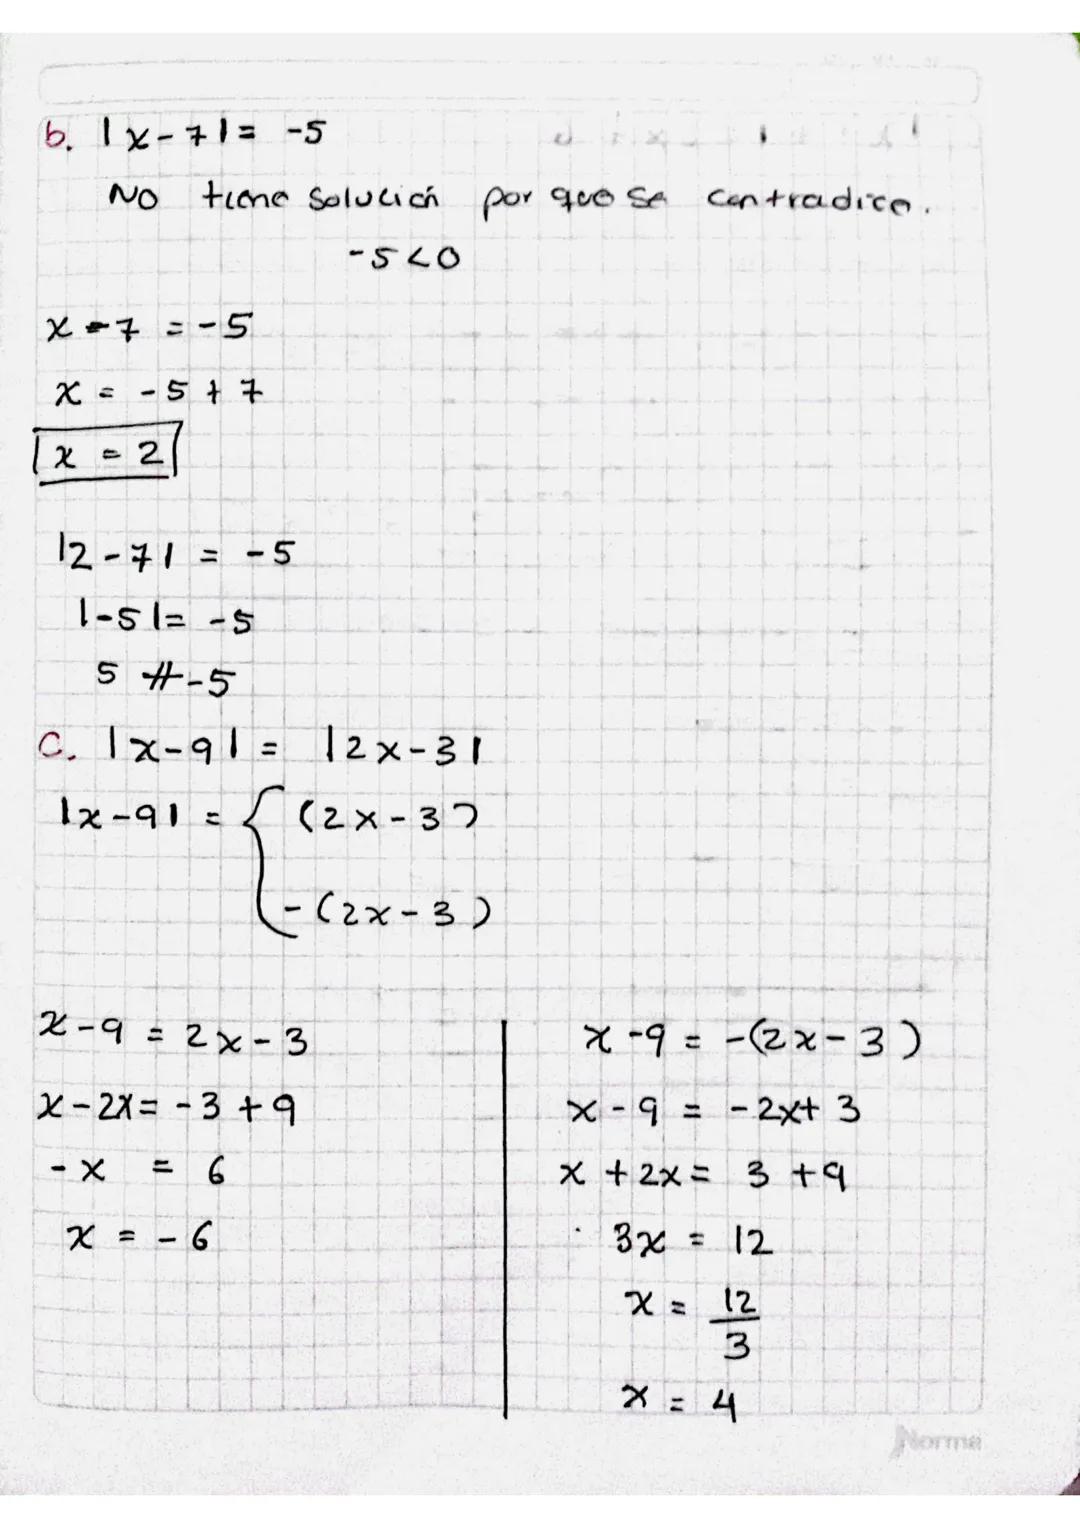 b. |x-7| = -5
No tiene solución por que se contradice.
-5<0
x-7 = -5
x = -5+7
x = 2
|2-7| = -5
|-5|= -5
5 ≠ -5
C. |x-9| = |2x-3|
|x-9| = { (2x-3)
-(2x-3)
x-9 = 2x-3
x-2x= -3+9
-x = 6
x = -6
x-9 = -(2x-3)
x-9 = -2x+3
x+2x= 3+9
3x = 12
x = 12/3
x = 4
Norma